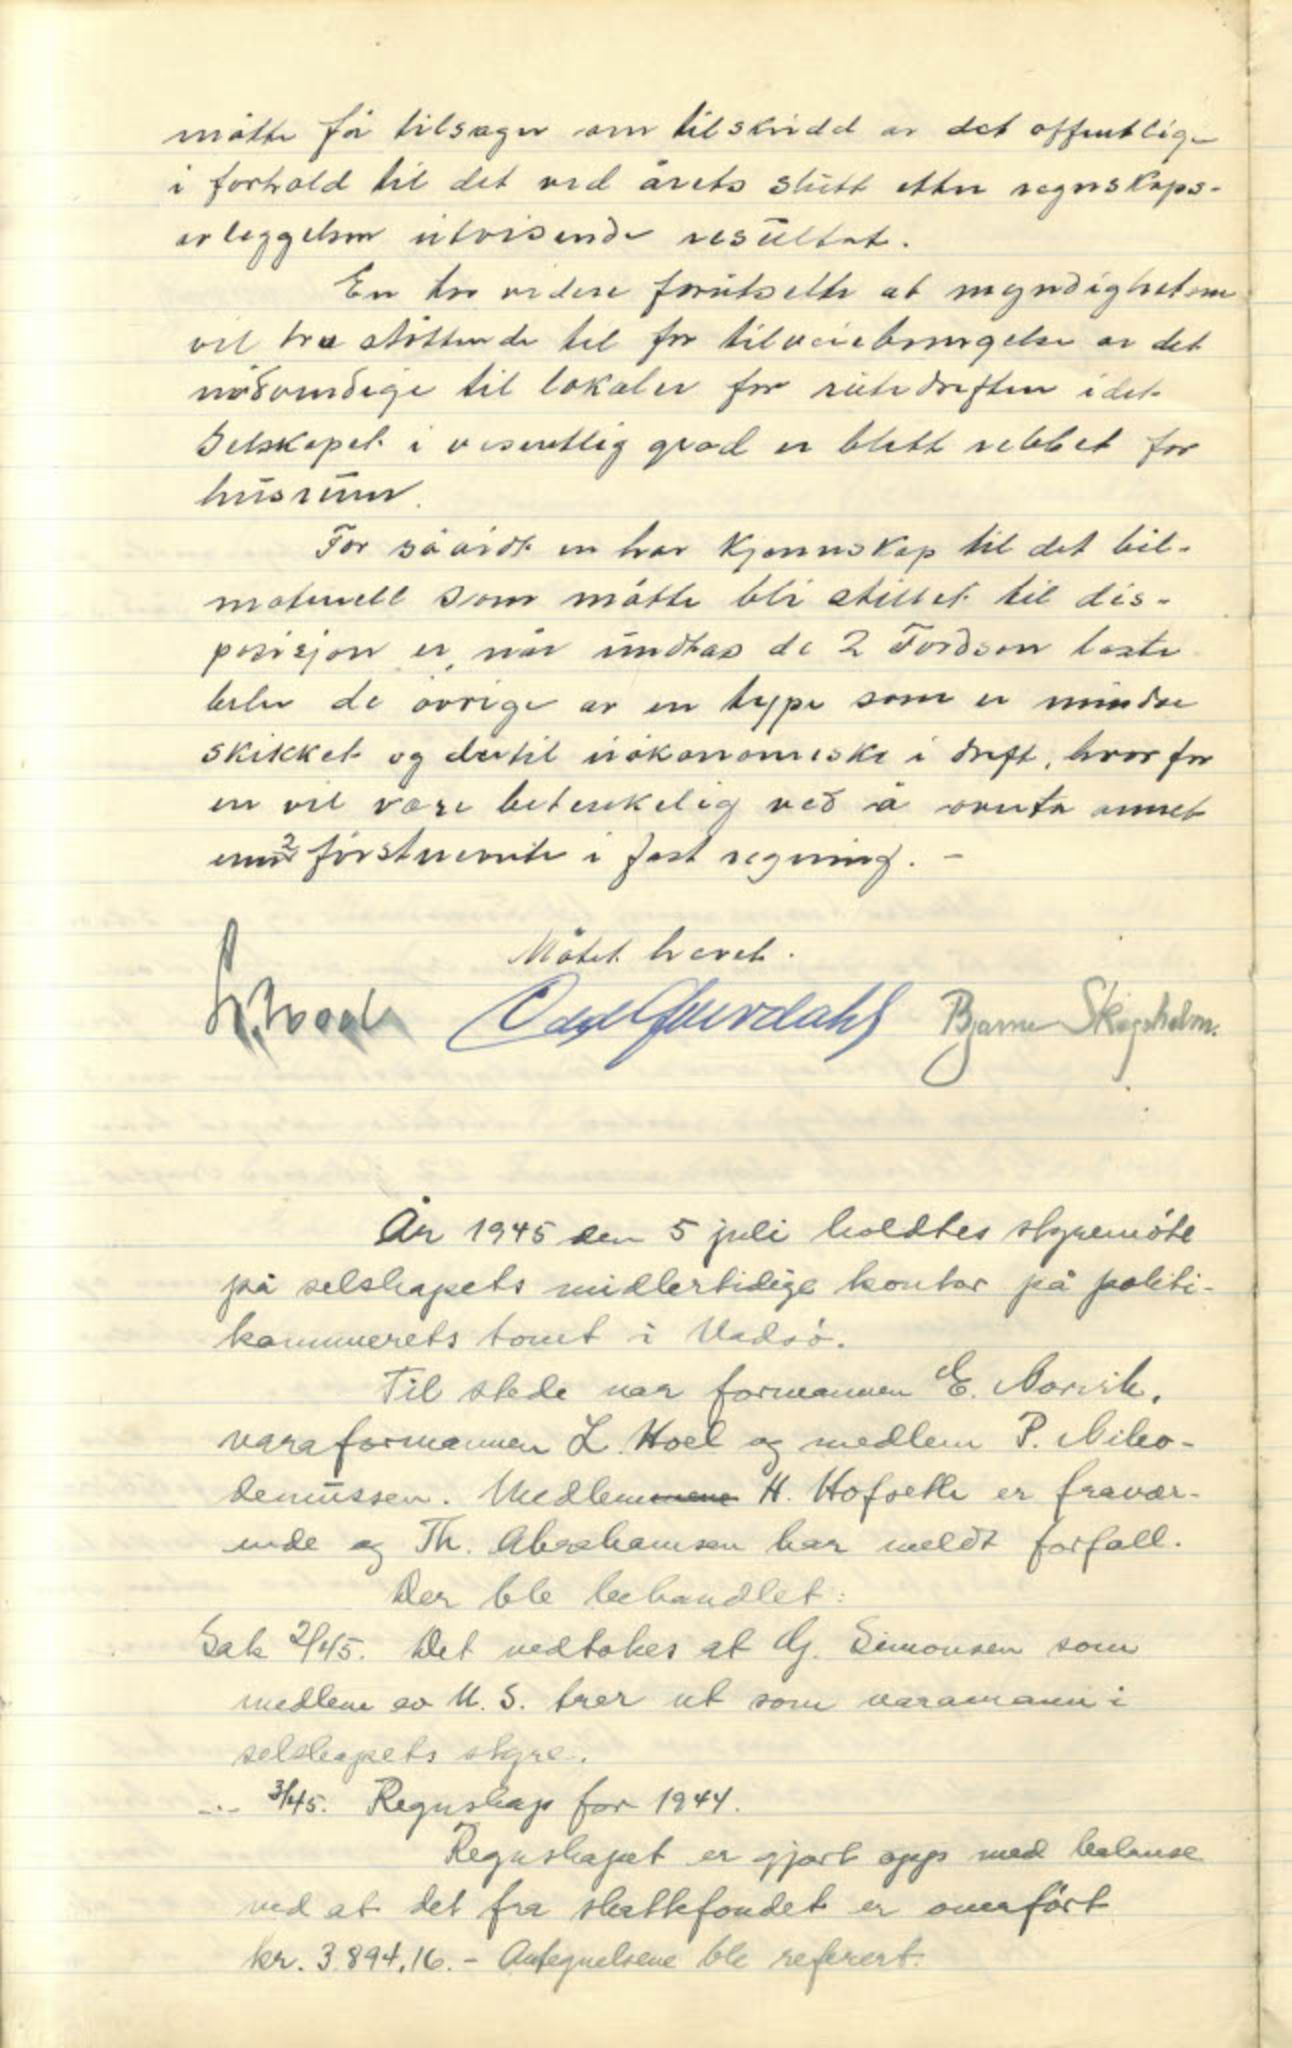 måtte få tilsagn om tilskudd av det offentlige
i forhold til det ved årets slutt etter regnskaps-
avleggelsen utvisende resultat.
En tør videre forutsette at myndighetene
vil tre støttende til for tilveiebringelse av det
nødvendige til lokaler for rutedriften idet
selskapet i vesentlig grad er blitt rebbet for
husrum.
For såvidt en har kjennskap til det bil-
materiell som måtte bli stillet til dis-
posisjon er, når undtas de 2 Fordson laste
biler de øvrige av en type som er mindre
skikket og dertil uøkonomiske i drift, hvorfor
en vil være betenkelig ved å overta annet
enn 2 førstnevnte i fast regning. –
Møtet hevet.
Odd Bjarne Skogsholm.
År 1945 den 5 juli holdtes styremøte
på selskapets midlertidige kontor på politi-
kammerets tomt i Vadsø.
Til stede var formannen E. Norvik,
varaformannen L. Hoel og medlem P. Niko-
demussen. Medlem H. Hofseth er fravær-
ende og Th. Abrahamsen har meldt forfall.
Der ble behandlet:
Sak 2/45. Det vedtokes at Hj. Simonsen som
medlem av N. S. trer ut som varamann i
selskapets styre.
-..- 3/45. Regnskap for 1944.
Regnskapet er gjort opp med balanse
ved at det fra skattefondet er overført
kr. 3.894,16. – Antegnelsene ble referert.